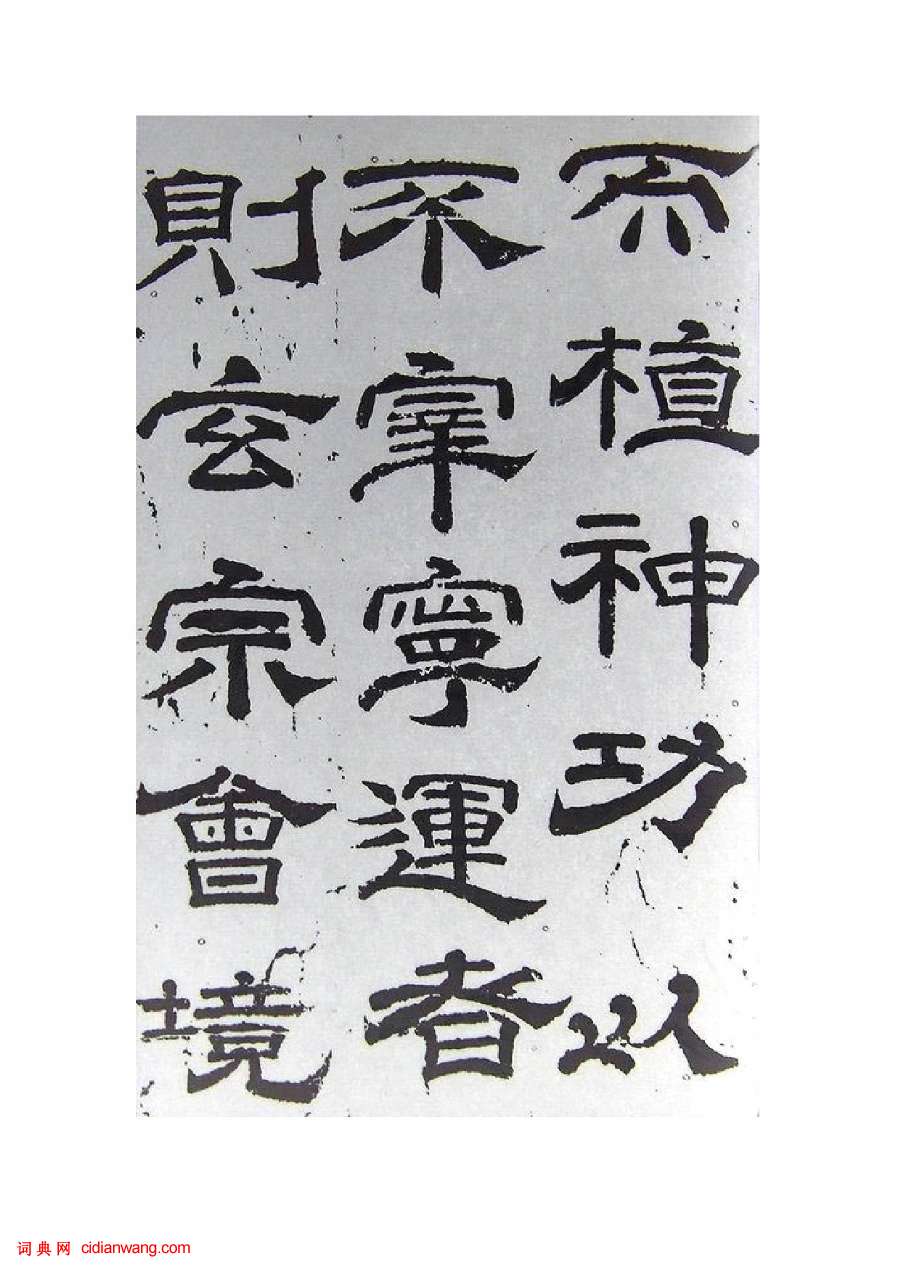 植神功以
不宰寧運者
則玄宗會境
词典网 cidianwang.com